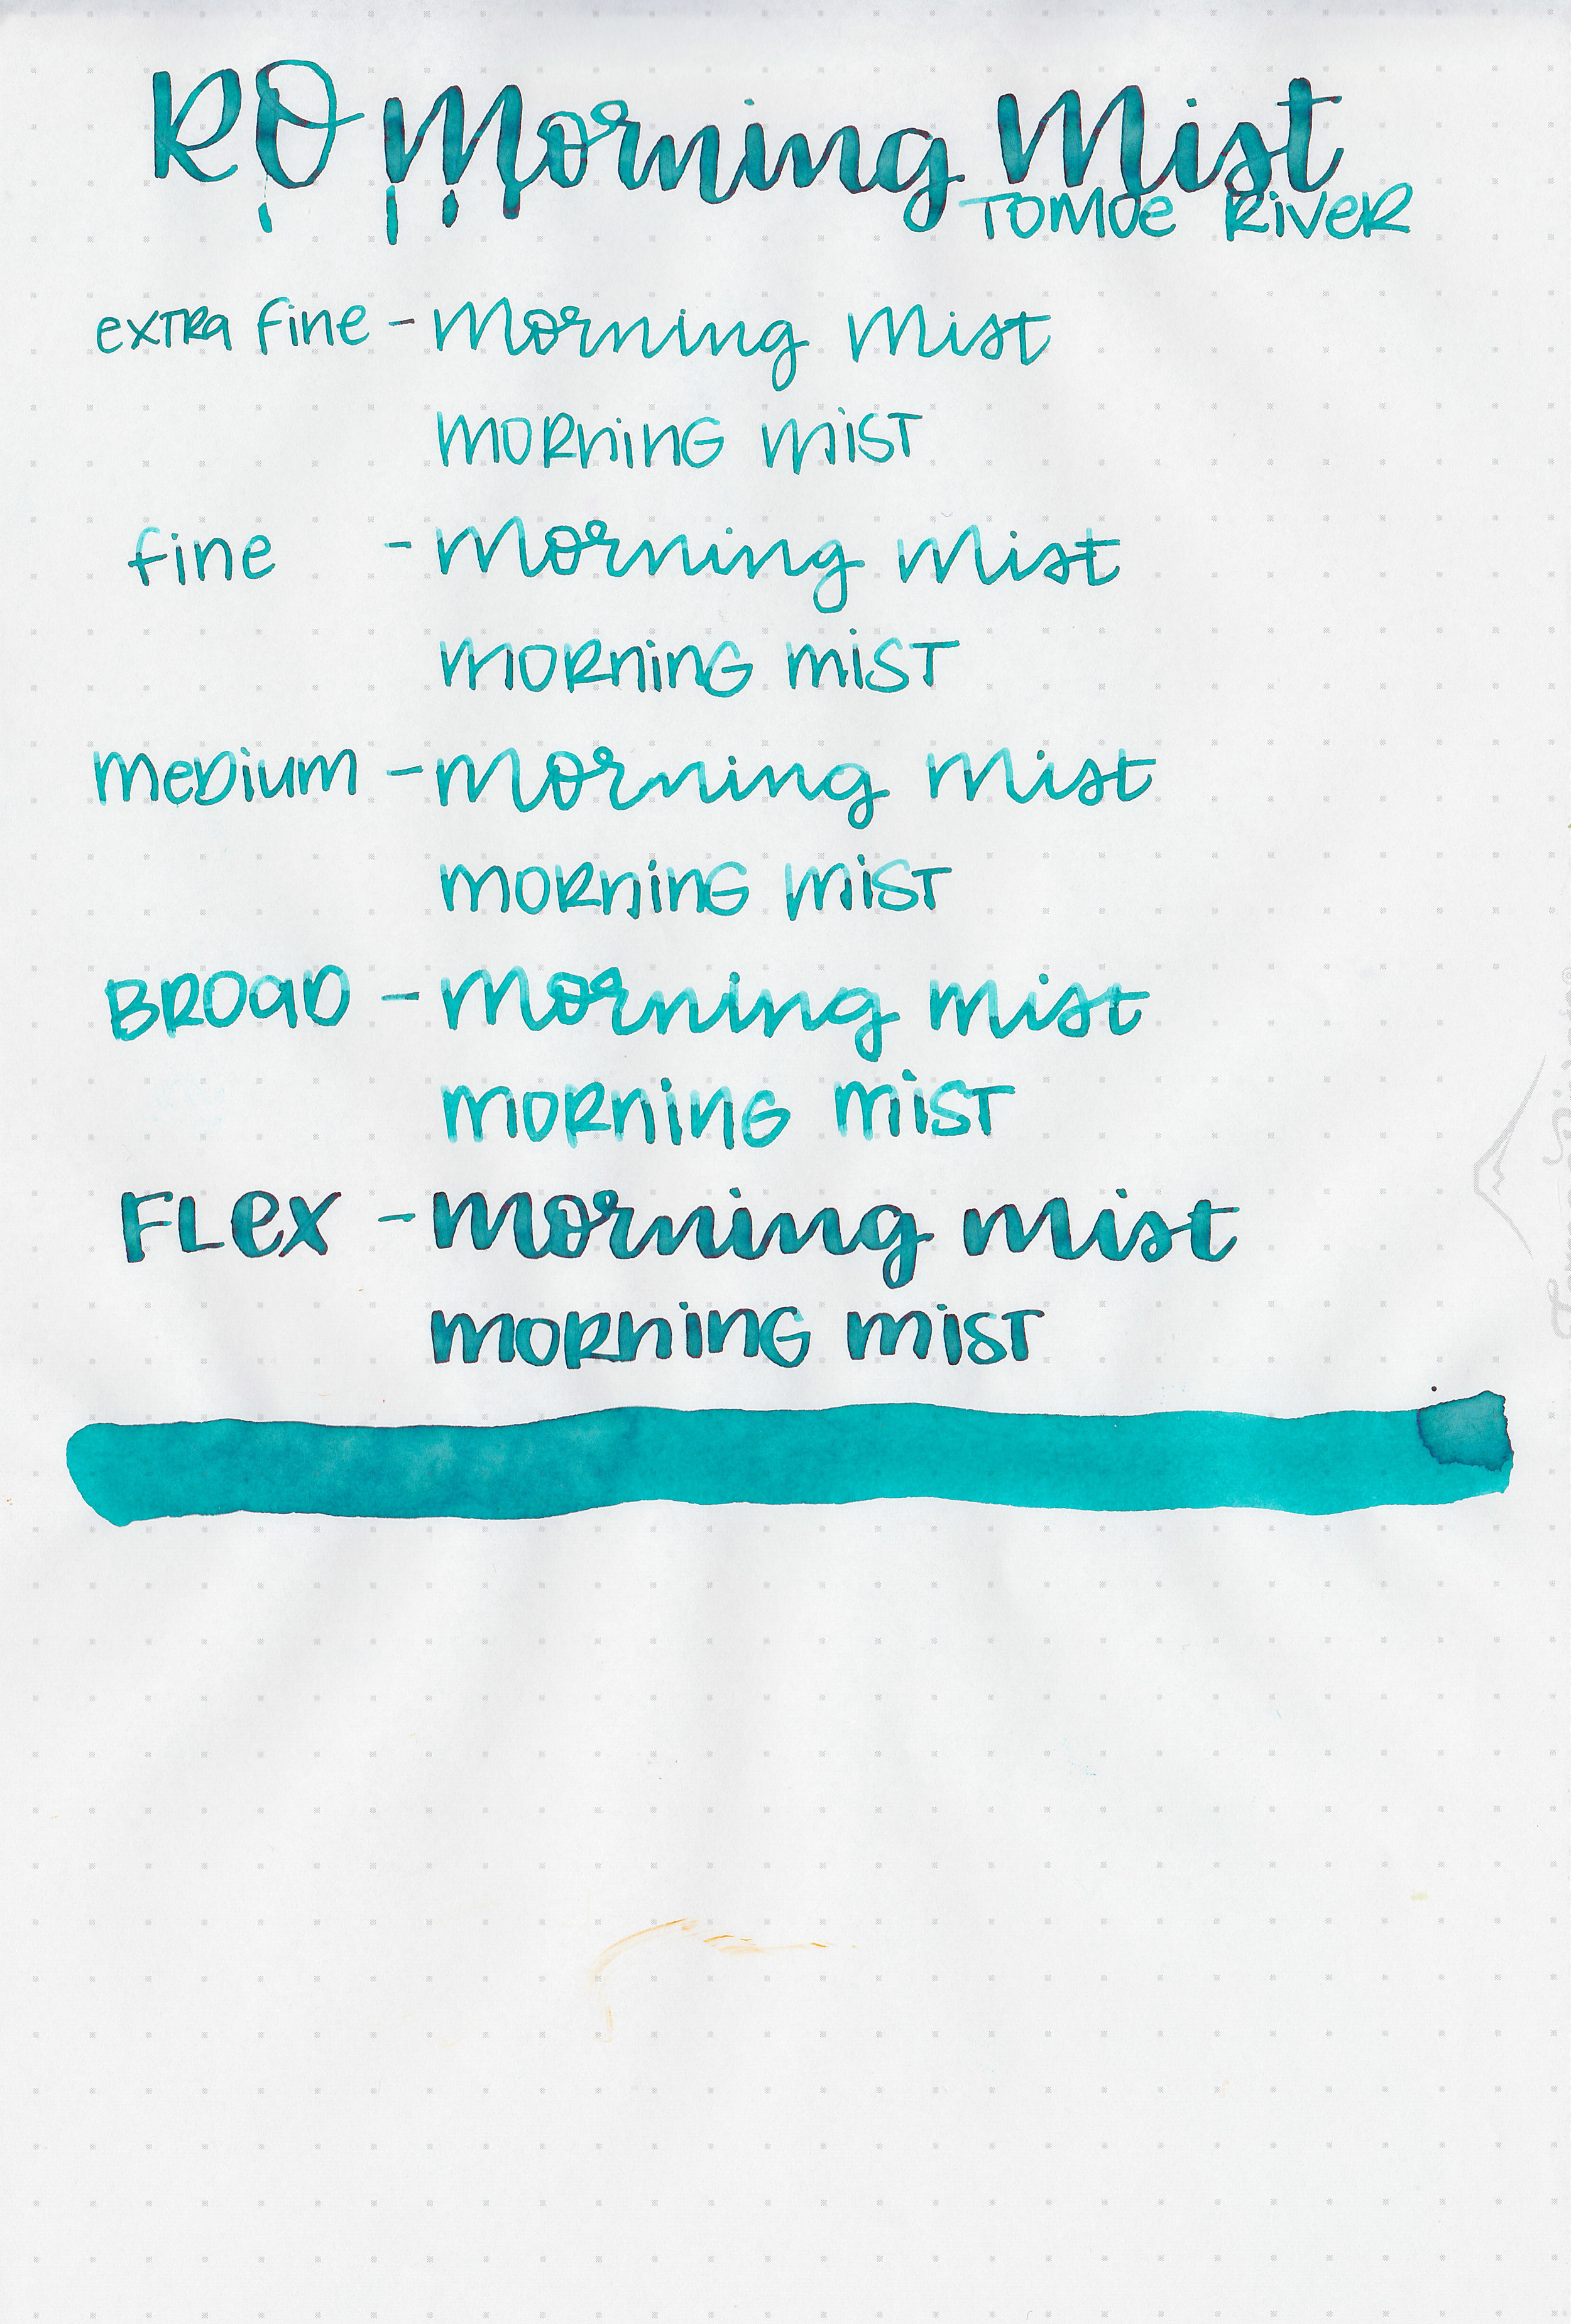 RO Morning Mist
TOMOE RIVER
EXTRA fine - Morning Mist
MORNING MIST
fine - Morning Mist
MORNING MIST
MEDIUM - Morning Mist
MORNING MIST
BROAD - Morning Mist
MORNING MIST
FLEX - Morning Mist
MORNING MIST